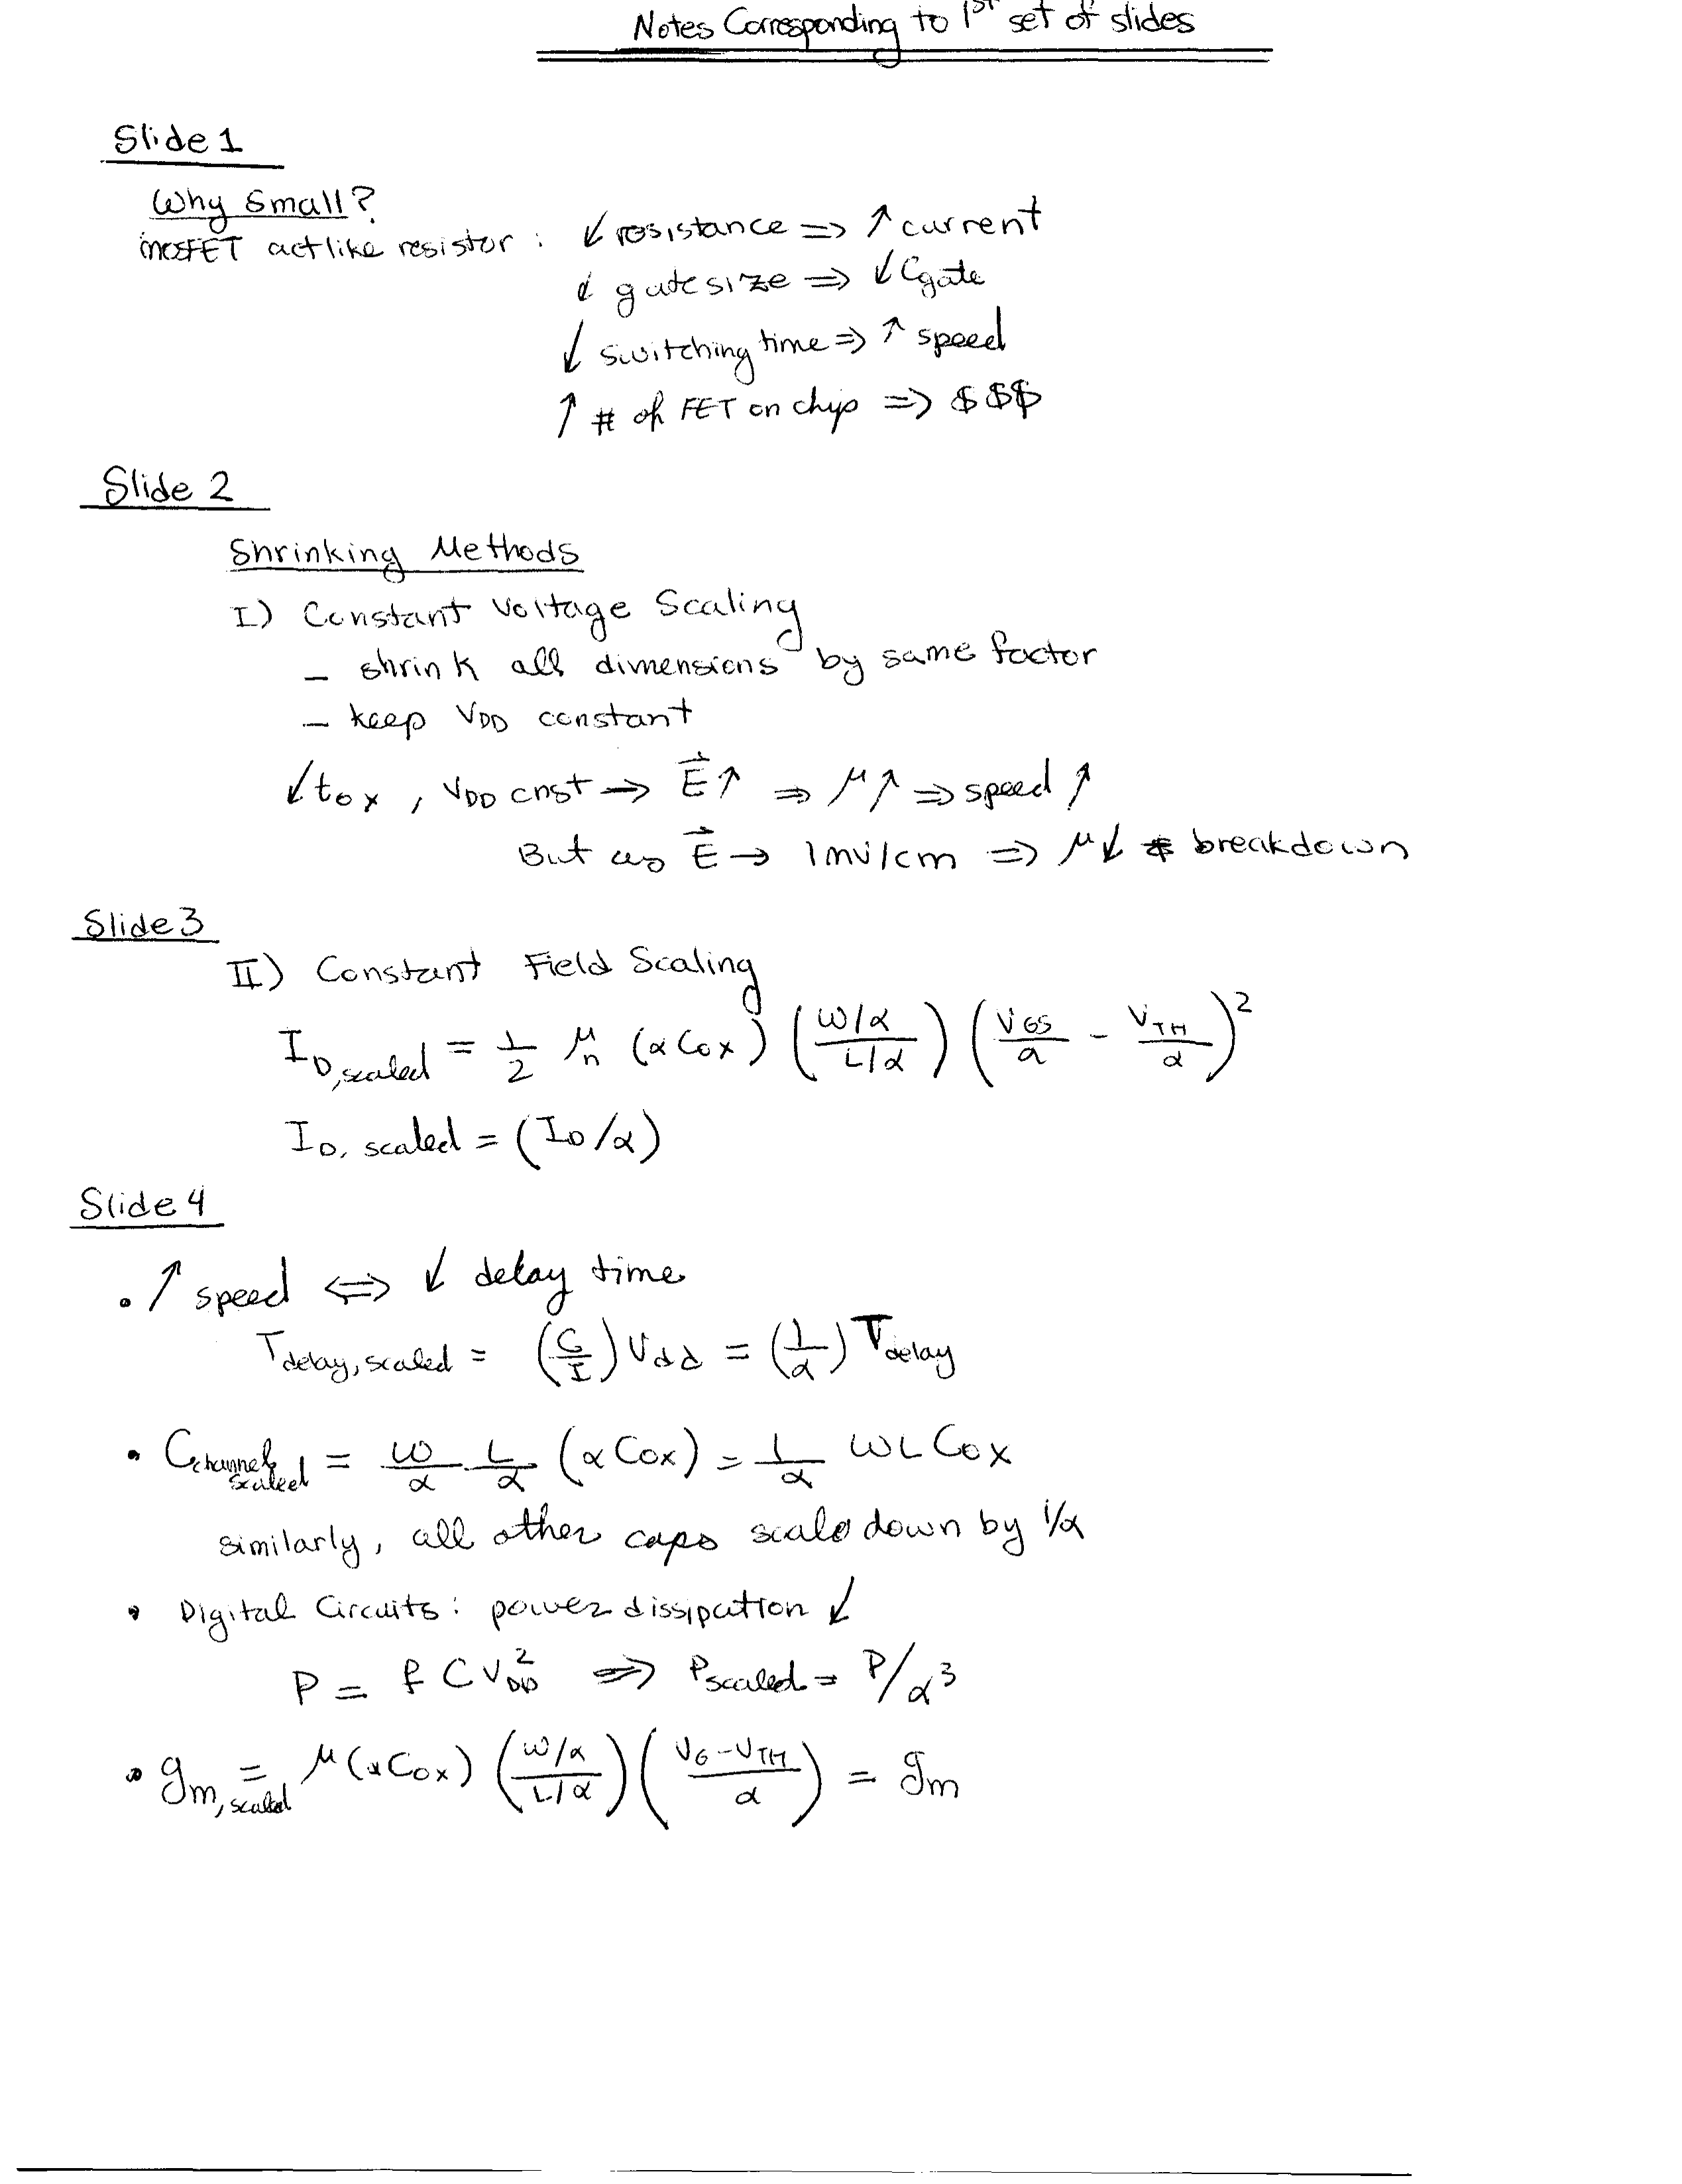 Notes Corresponding to 1st set of slides
Slide 1
Why Small?
MOSFET act like resistor : ↓ resistance => ↑ current
↓ gate size => ↓ Cgate
↓ switching time => ↑ speed
↑ # of FET on chip => $$$
Slide 2
Shrinking Methods
I) Constant Voltage Scaling
- shrink all dimensions by same factor
- keep VDD constant
↓tox , VDD cnst → E⃗↑ => μ↑ => speed ↑
But as E⃗ → 1mv/cm => μ↓ & breakdown
Slide 3
II) Constant Field Scaling
I_D,scaled = 1/2 μn (αCox) ((W/α)/(L/α)) (VGS/α - VTH/α)²
I_D, scaled = (ID/α)
Slide 4
• ↑ speed <=> ↓ delay time
Tdelay,scaled = (C/I) Vdd = (1/α) Tdelay
• Cchannel, scaled = W/α L/α (αCox) = 1/α WL Cox
similarly, all other caps scale down by 1/α
• Digital Circuits: power dissipation ↓
P = f C VDD² => Pscaled = P/α³
• gm, scaled = μ(αCox) ((W/α)/(L/α)) ((VG-VTH)/α) = gm